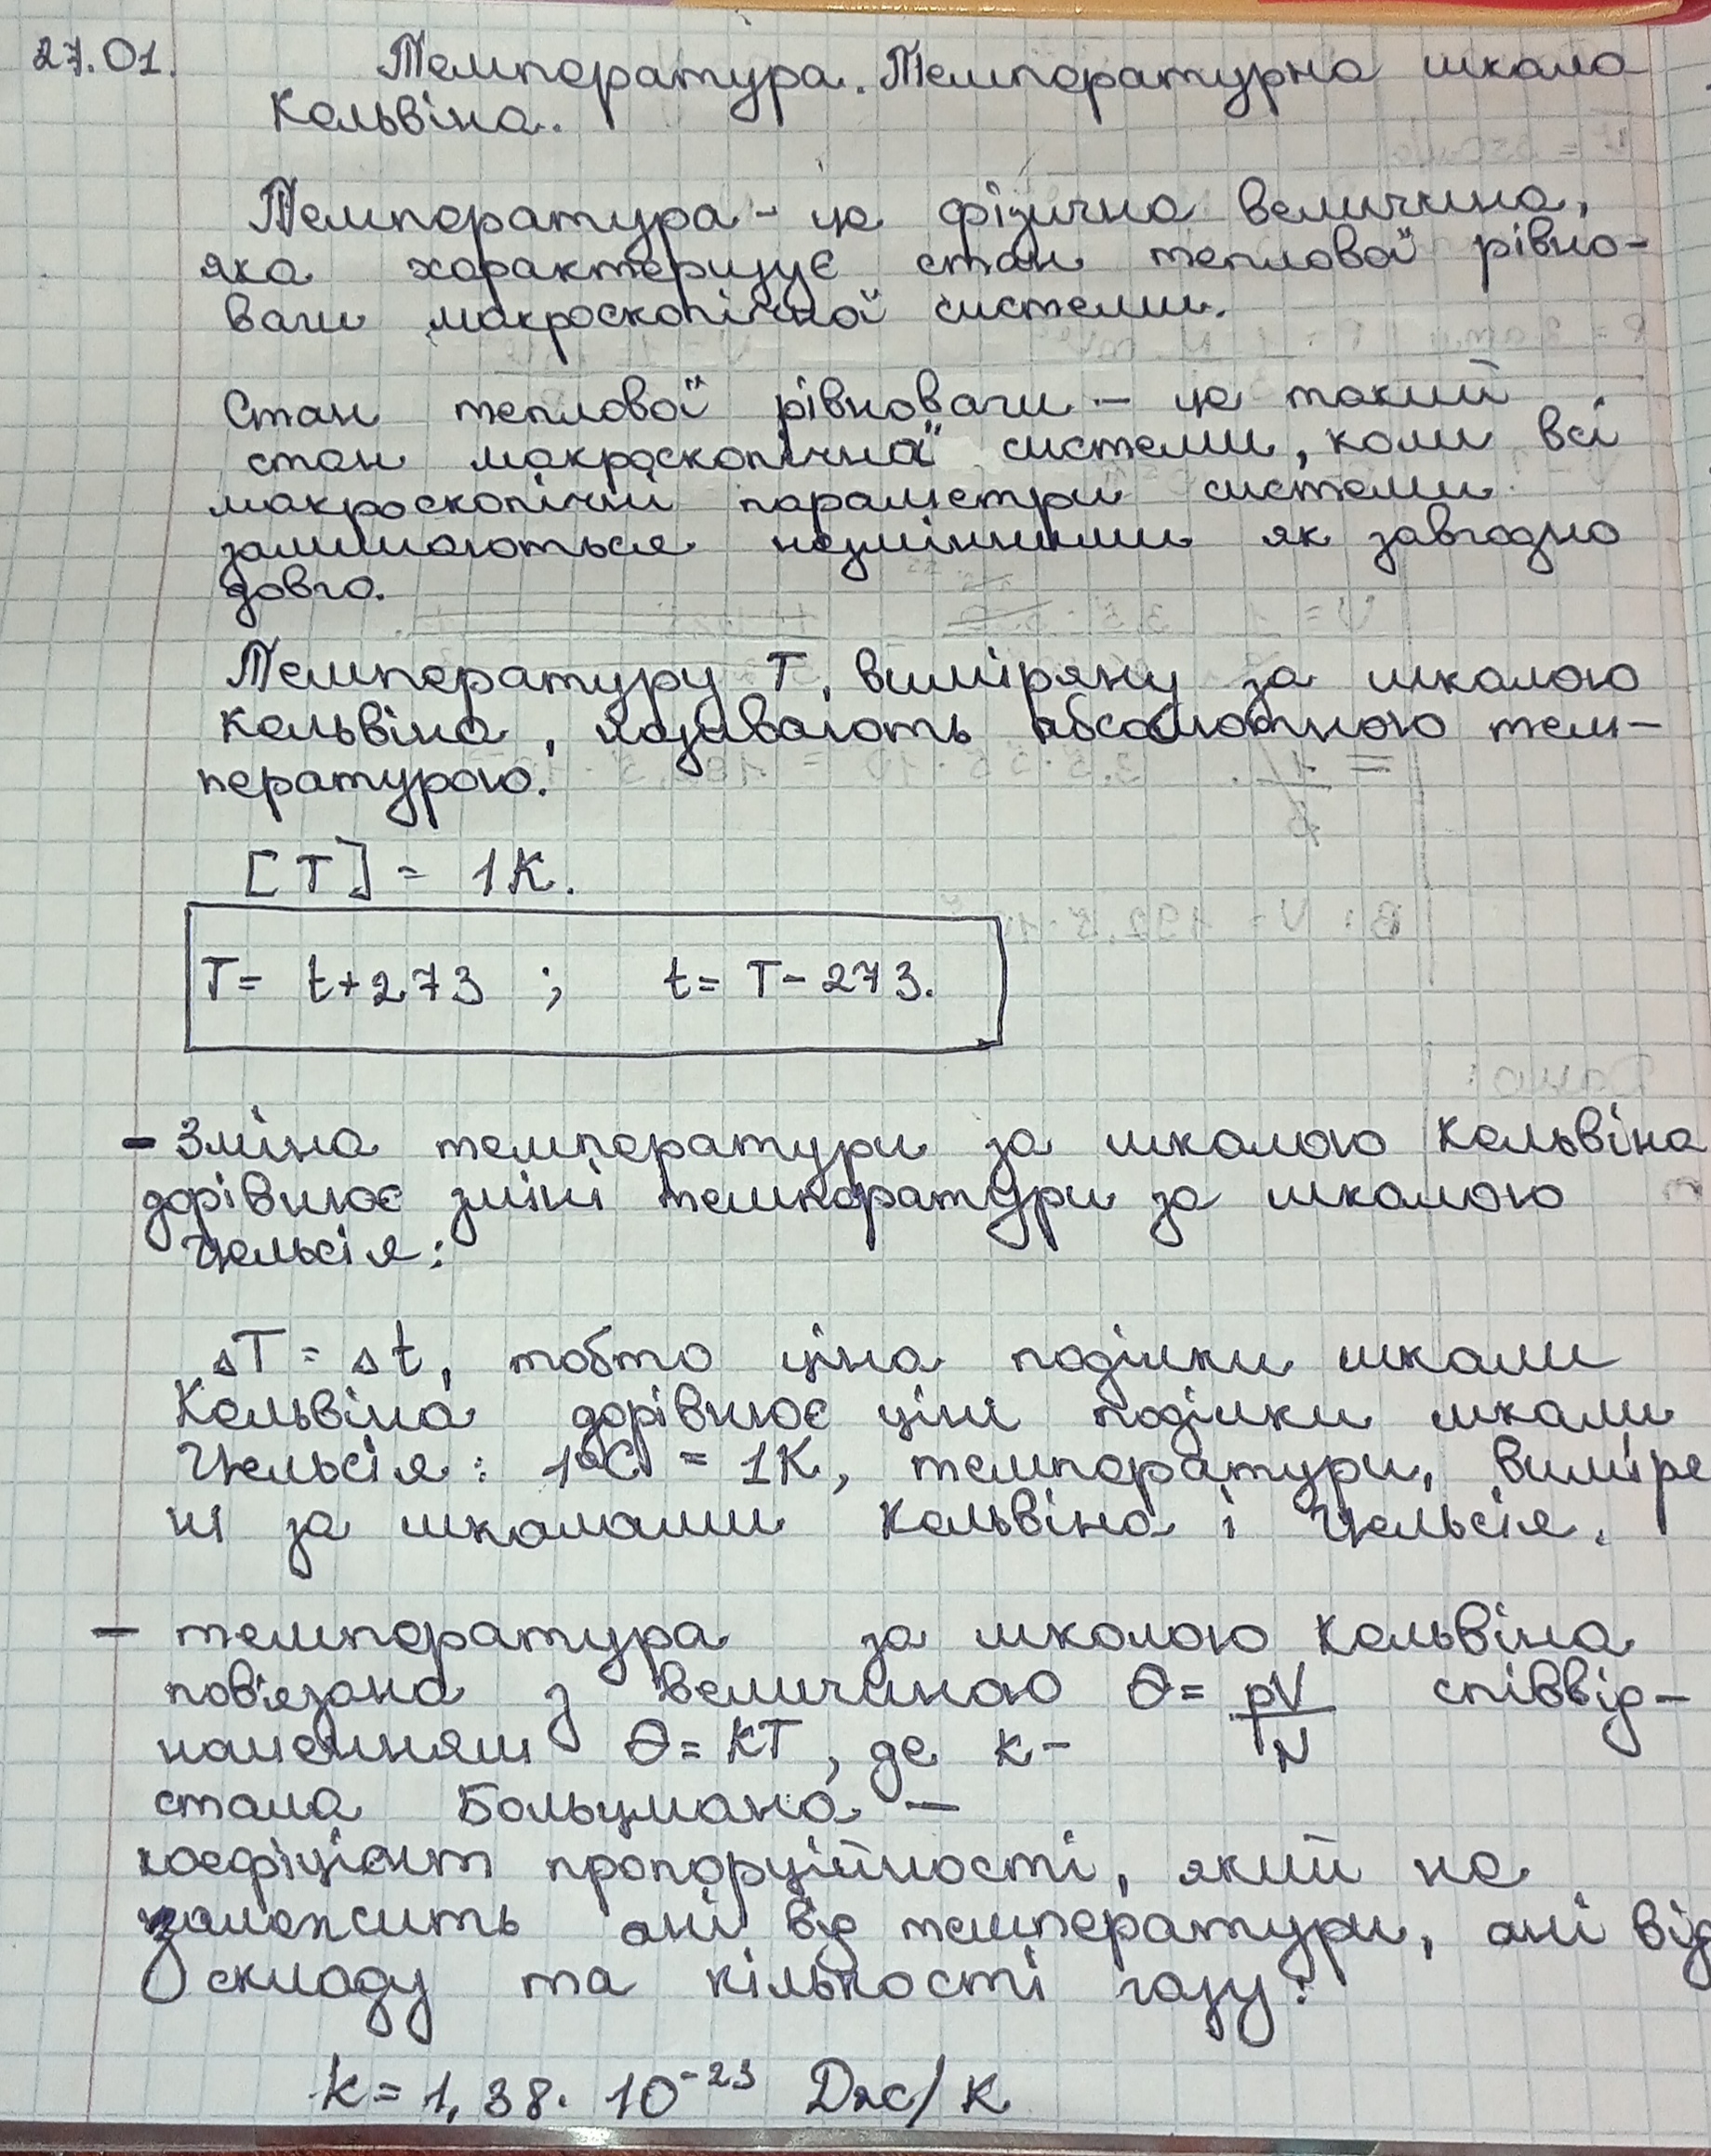 27.01. Температура. Температурна шкала
Кельвіна.
Температура - це фізична величина,
яка характеризує стан теплової рівно-
ваги макроскопічної системи.
Стан теплової рівноваги - це такий
стан макроскопічної системи, коли всі
макроскопічні параметри системи
залишаються незмінними як завгодно
довго.
Температуру T, виміряну за шкалою
Кельвіна, називають абсолютною тем-
пературою.
[T] = 1K.
T = t+273 ; t = T - 273.
- Зміна температури за шкалою Кельвіна
дорівнює зміні температури за шкалою
Цельсія:
ΔT = Δt, тобто ціна поділки шкали
Кельвіна дорівнює ціні поділки шкали
Цельсія: 1°C = 1K, температури, виміре
ні за шкалами Кельвіна і Цельсія.
- температура за шкалою Кельвіна
пов'язана з величиною Θ = pV/N співвід-
ношенням Θ = kT, де k -
стала Больцмана -
коефіцієнт пропорційності, який не
залежить ані від температури, ані від
складу та кількості газу:
k = 1,38 · 10⁻²³ Дж/К